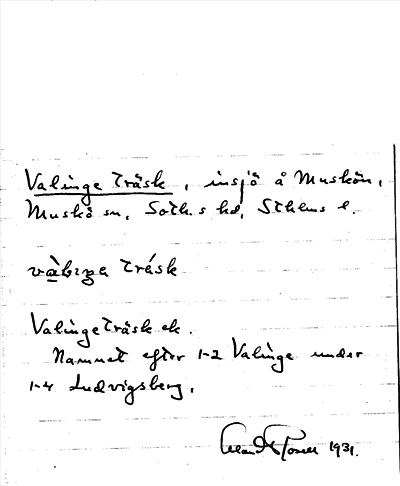 Valinge träsk, insjö å Muskön,
Muskö sn, Soth.s hd, Sthlms l.
träsk
Valinge träsk ek.
Namnet efter 1-2 Valinge under
1-4 Ludvigsberg.
1931.